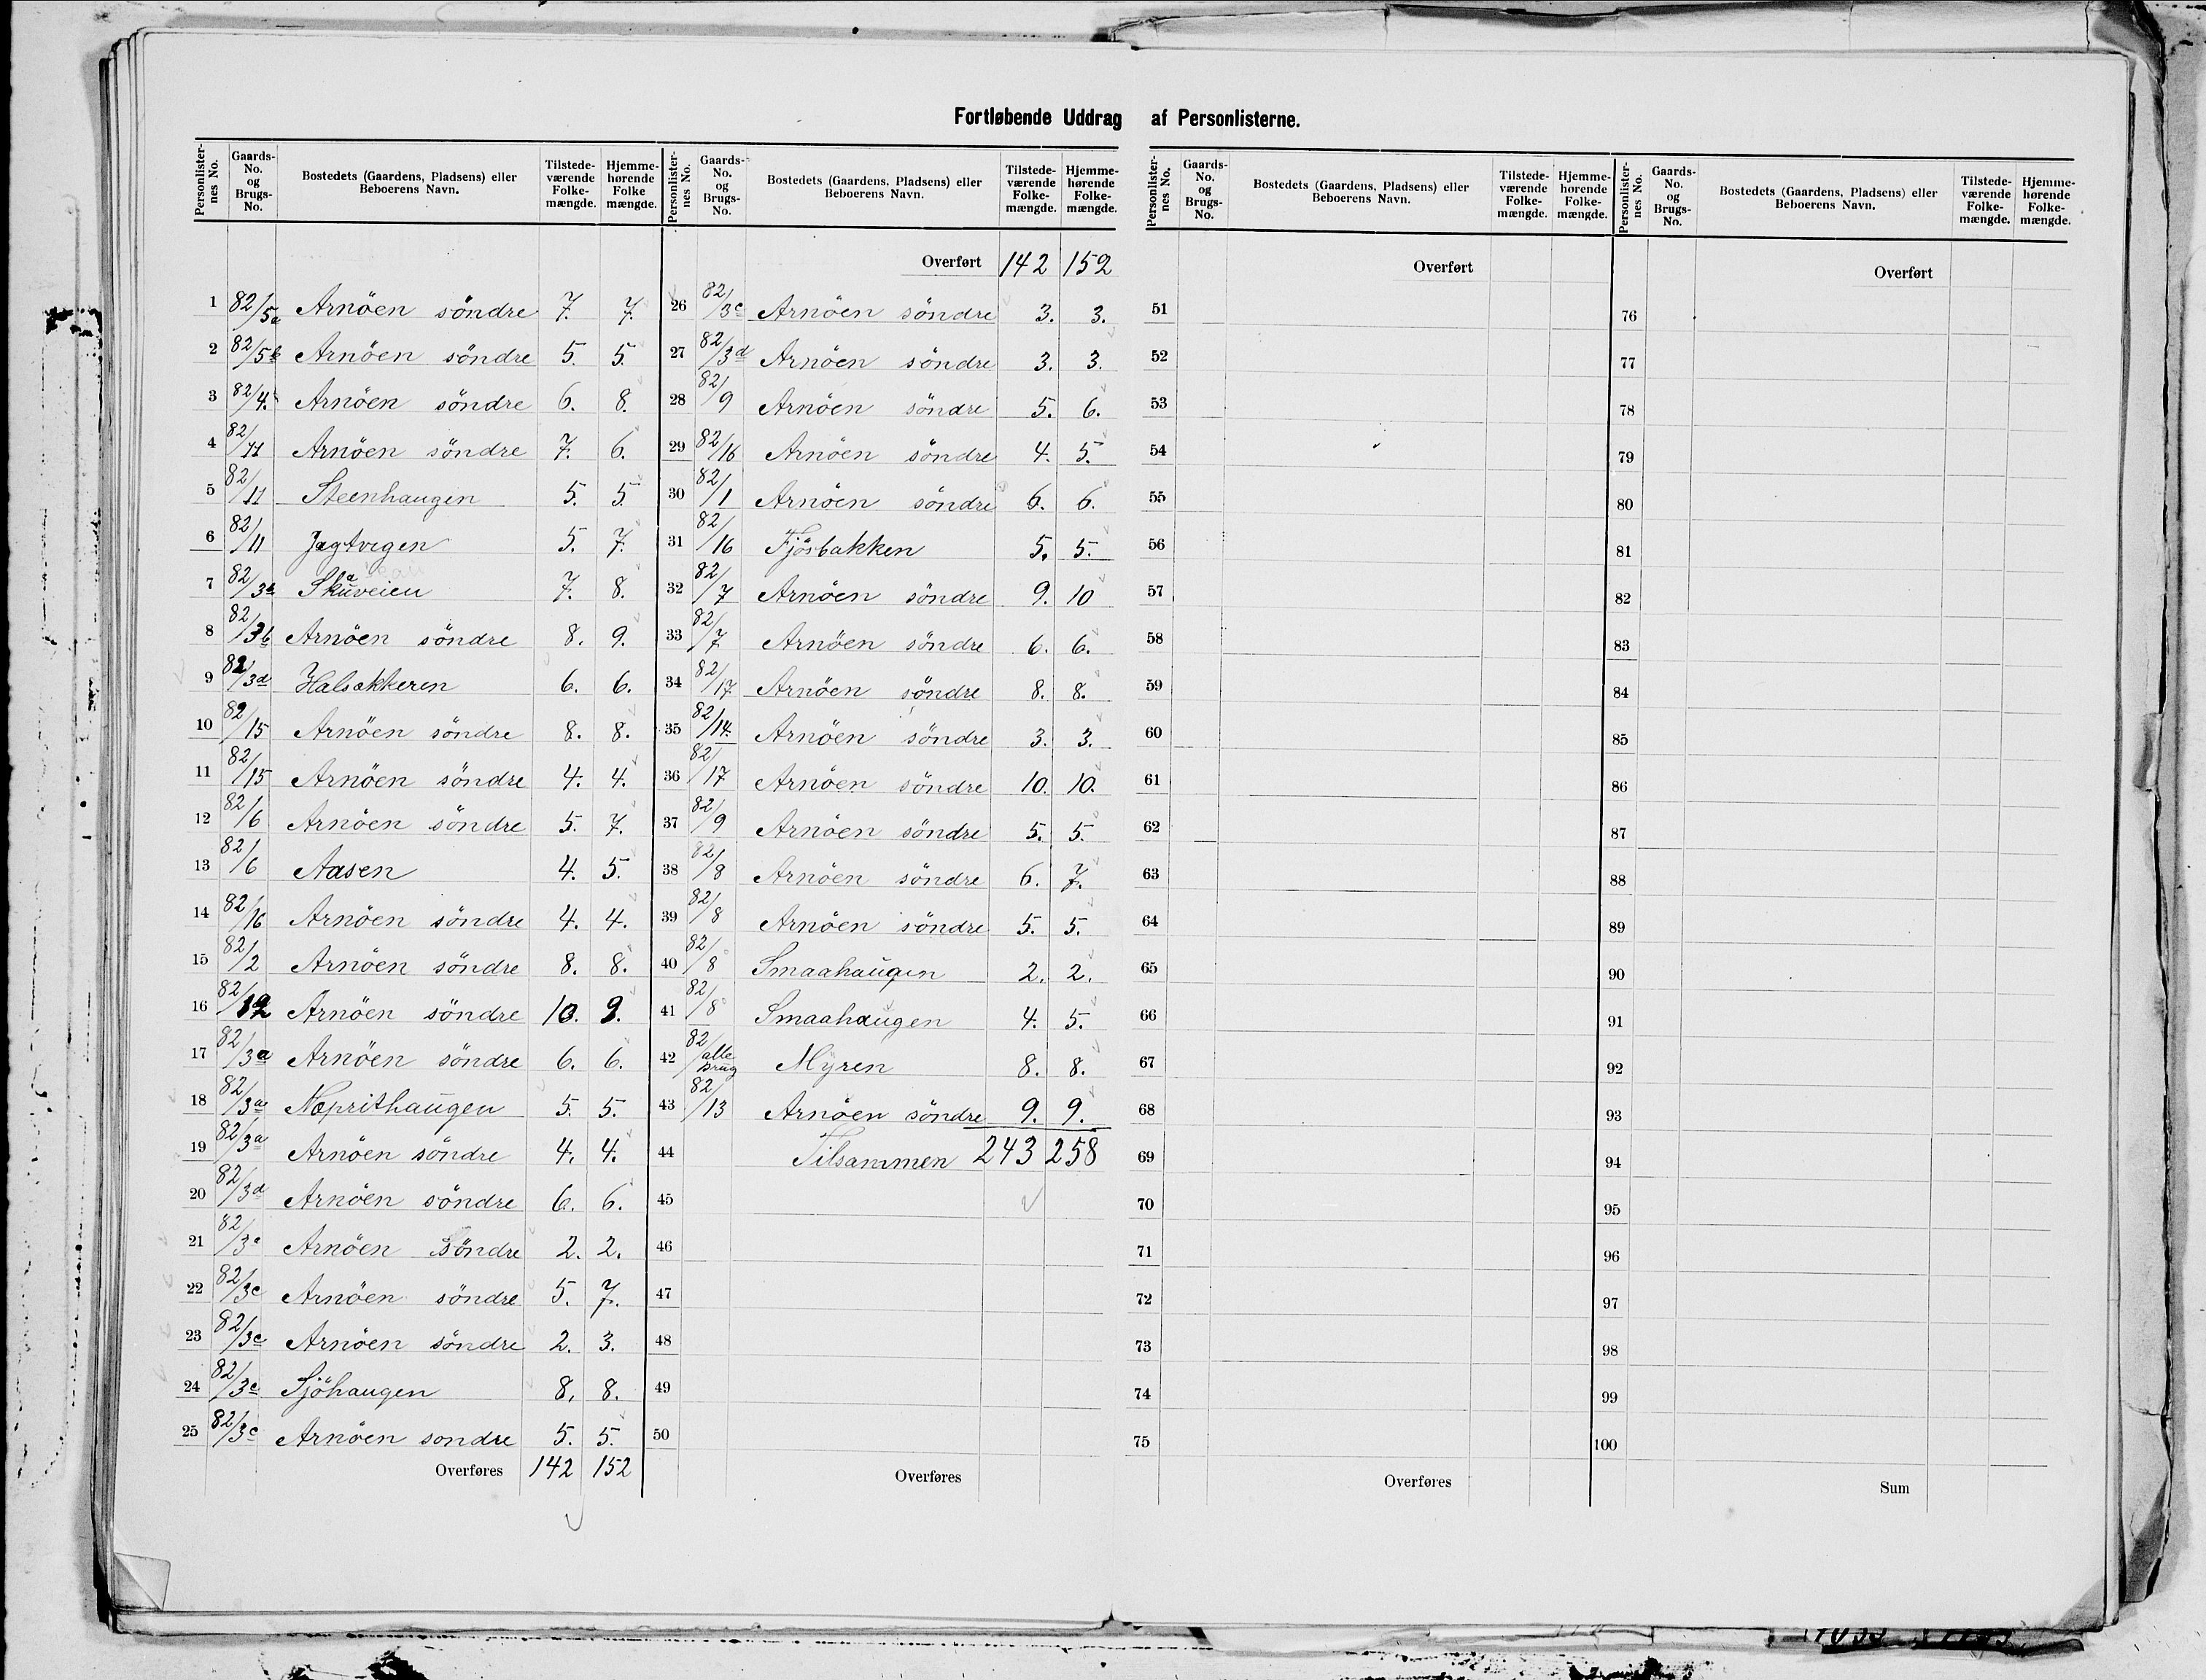 Fortløbende Uddrag af Personlisterne.
Personlister-nes No. Gaards-No. og Brugs-No. Bostedets (Gaardens, Pladsens) eller Beboerens Navn. Tilstede-værende Folke-mængde. Hjemme-hørende Folke mængde.
1 82/5a Arnöen söndre 7. 7.
2 82/5b Arnöen söndre 5. 5.
3 82/4. Arnöen söndre 6. 8.
4 82/11 Arnöen söndre 7. 6.
5 82/11 Steenhaugen 5. 5.
6 82/11 Jagtvigen 5. 7.
7 82/3a Skaveien 7. 8.
8 82/3b Arnöen söndre 8. 9.
9 82/3d Halsakkeren 6. 6.
10 82/15 Arnöen söndre 8. 8.
11 82/15 Arnöen söndre 4. 4.
12 82/6 Arnöen söndre 5. 7.
13 82/6 Aasen 4. 5.
14 82/16 Arnöen söndre 4. 4.
15 82/2 Arnöen söndre 8. 8.
16 82/12 Arnöen söndre 10. 9.
17 82/3a Arnöen söndre 6. 6.
18 82/3a Næprithaugen 5. 5.
19 82/3a Arnöen söndre 4. 4.
20 82/3d Arnöen söndre 6. 6.
21 82/3c Arnöen Söndre 2. 2.
22 82/3c Arnöen söndre 5. 7.
23 82/3c Arnöen söndre 2. 3.
24 82/3c Sjöhaugen 8. 8.
25 82/3c Arnöen sondre 5. 5.
Overføres 142 152
Personlister-nes No. Gaards-No. og Brugs-No. Bostedets (Gaardens, Pladsens) eller Beboerens Navn. Tilstede-værende Folke-mængde. Hjemme-hørende Folke-mængde.
Overført 142 152
26 82/3c Arnöen söndre 3. 3.
27 82/3d Arnöen söndre 3. 3.
28 82/9 Arnöen söndre 5. 6.
29 82/16 Arnöen söndre 4. 5.
30 82/1 Arnöen söndre 6. 6.
31 82/16 Fjösbakken 5. 5.
32 82/7 Arnöen söndre 9. 10
33 82/7 Arnöen söndre 6. 6.
34 82/17 Arnöen söndre 8. 8.
35 82/14. Arnöen söndre 3. 3.
36 82/17 Arnöen söndre 10. 10.
37 82/9 Arnöen söndre 5. 5.
38 82/8 Arnöen söndre 6. 7.
39 82/8 Arnöen söndre 5. 5.
40 82/8 Smaahaugen 2. 2.
41 82/8 Smaahaugen 4. 5.
42 82/alle brug Myren 8. 8.
43 82/13 Arnöen söndre 9. 9.
44 Tilsammen 243 258
45
46
47
48
49
50
Overføres
Personlister-nes No. Gaards-No. og Brugs-No. Bostedets (Gaardens, Pladsens) eller Beboerens Navn. Tilstede-værende Folke-mængde. Hjemme-hørende Folke-mængde.
Overført
51
52
53
54
55
56
57
58
59
60
61
62
63
64
65
66
67
68
69
70
71
72
73
74
75
Overføres
Personlister-nes No. Gaards-No. og Brugs-No. Bostedets (Gaardens, Pladsens) eller Beboerens Navn. Tilstede-værende Folke-mængde. Hjemme-hørende Folke-mængde.
Overført
76
77
78
79
80
81
82
83
84
85
86
87
88
89
90
91
92
93
94
95
96
97
98
99
100
Sum